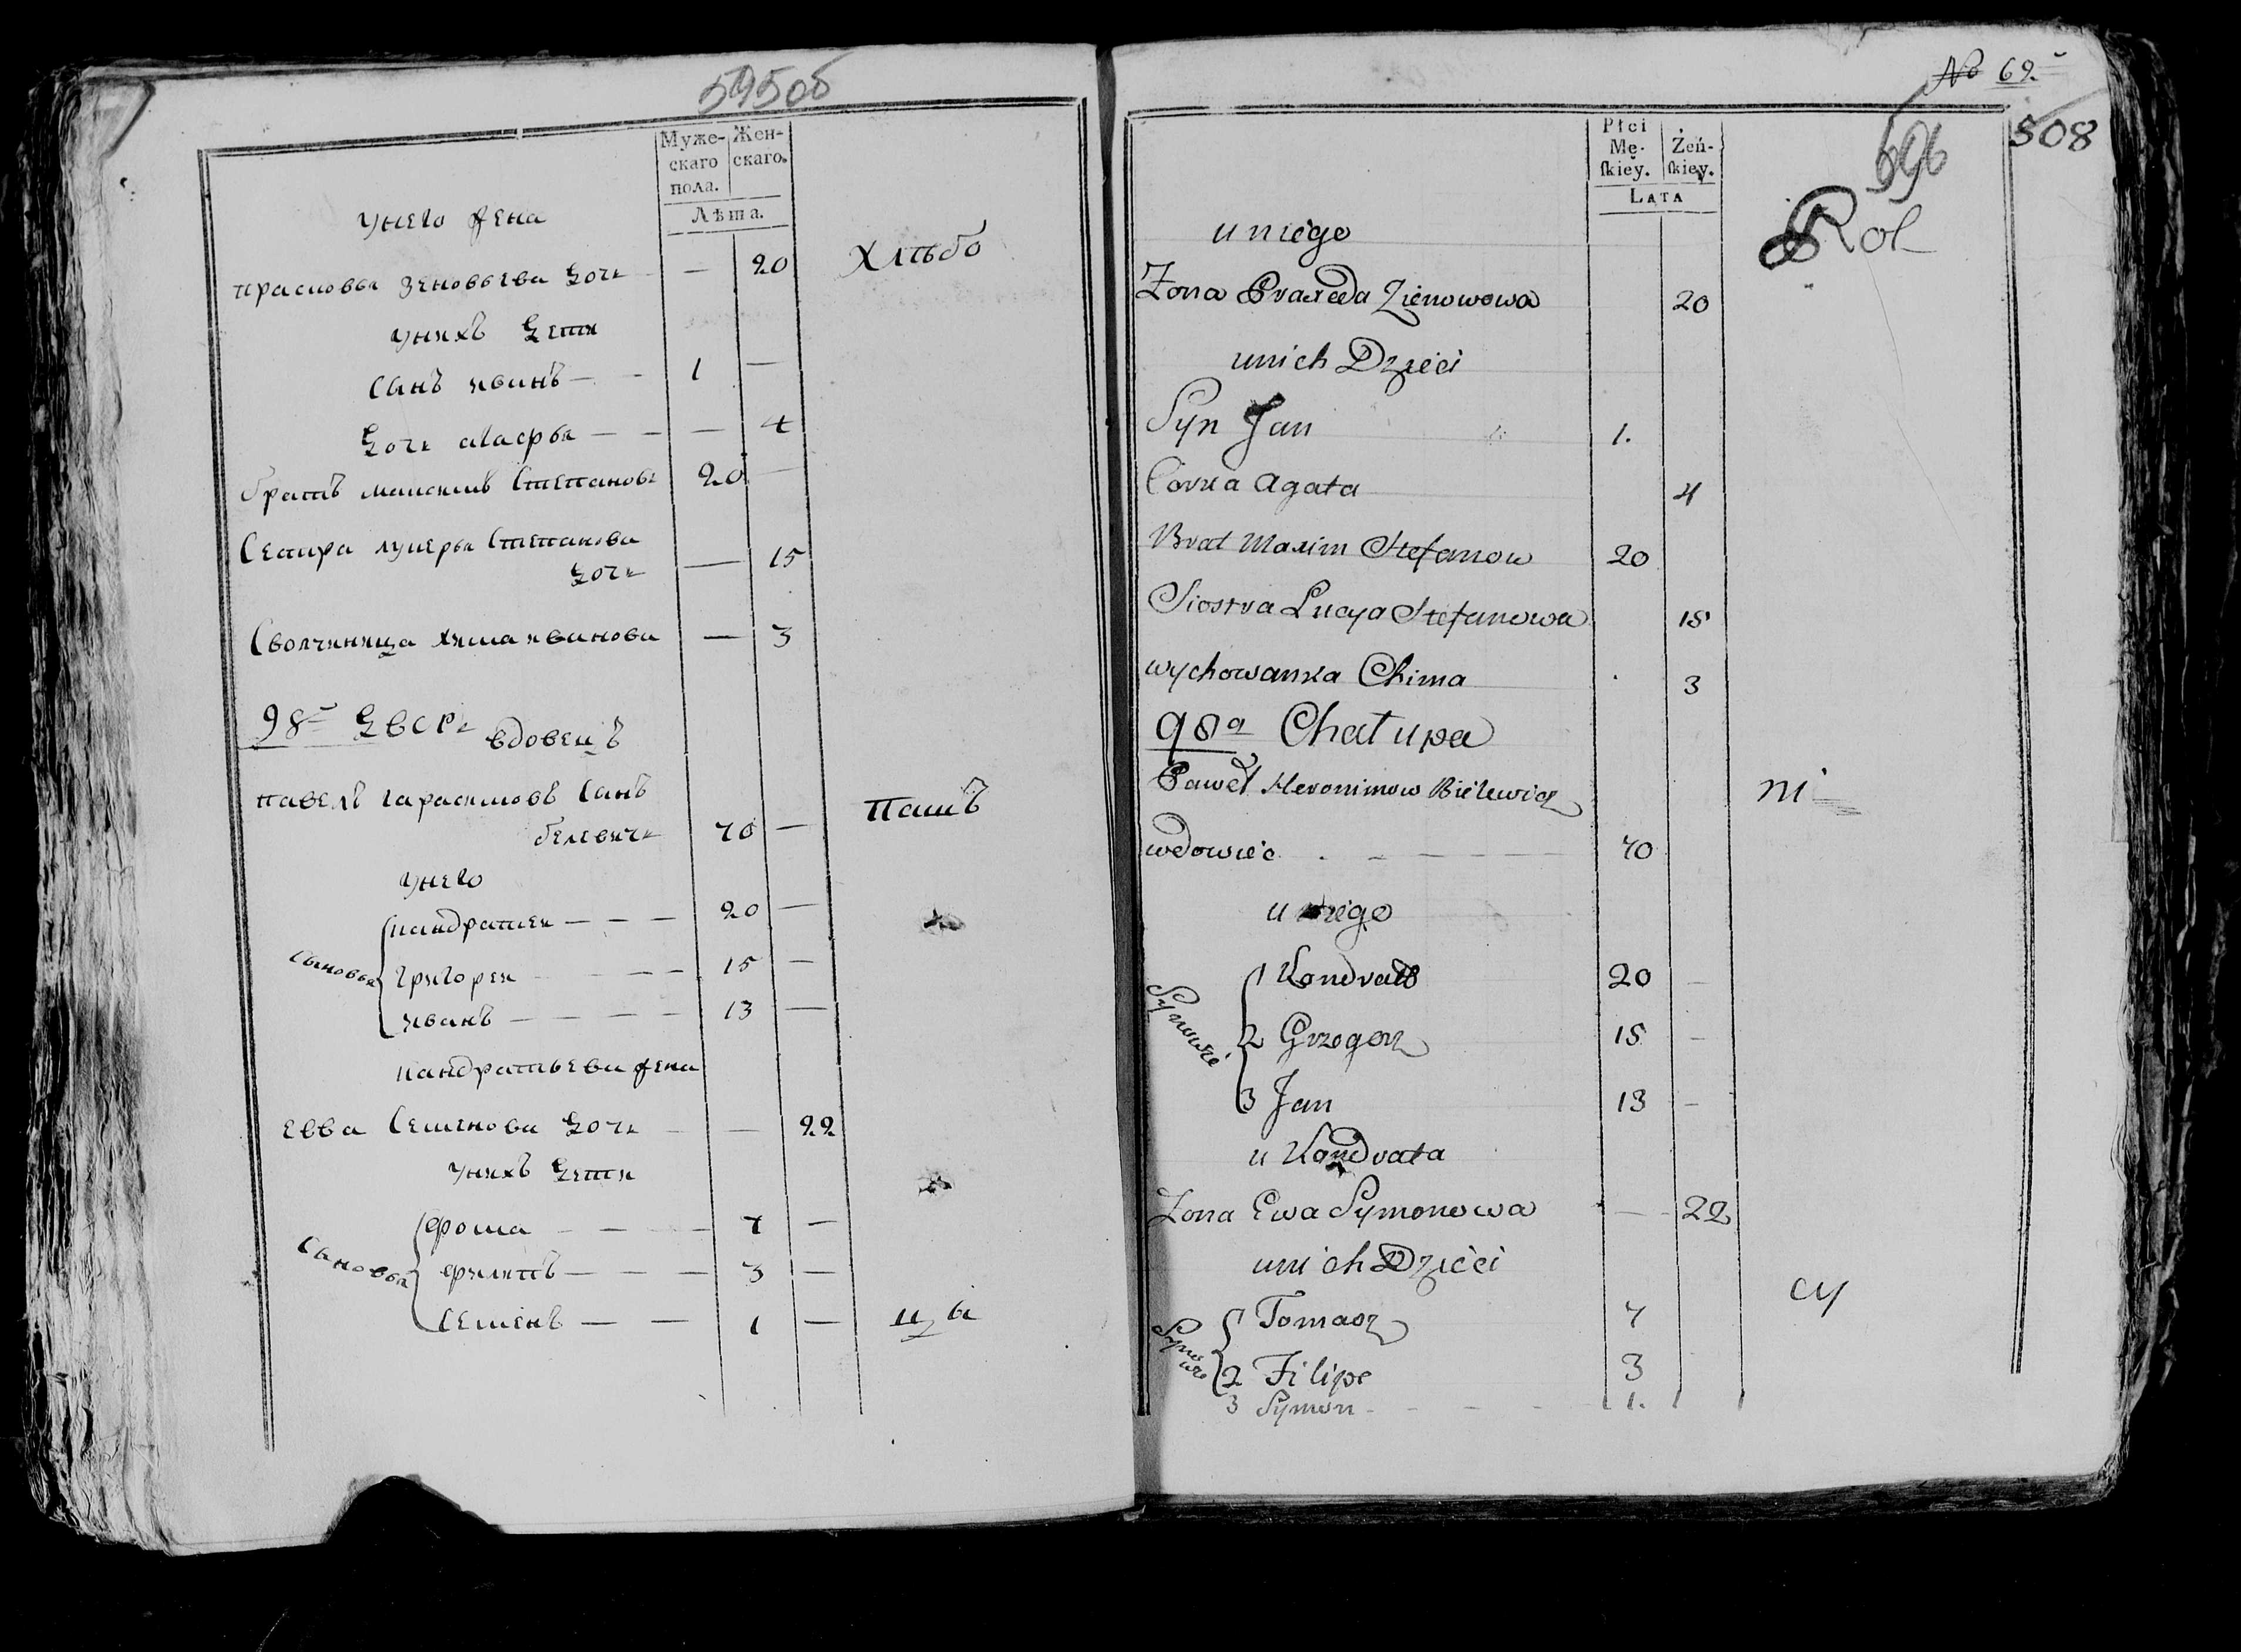 595об
Муже-
скаго
пола.
Жен-
скаго.
Лѣта.
унего жена
прасковья зеновьева дочь — 20
Хлѣбо
унихъ дети
Сынъ иванъ — - 1 —
дочь агафья — — — 4
братъ максимъ Степановъ 20 —
Сестра луцерья Степанова
дочь — 15
Сволчиница химa иванова — 3
98й дворъ вдовецъ
павелъ гарасимовъ Сынъ
белевичь 70 —
Пашъ
унего
Сыновья
кандратеи — — — 20 —
григореи — — — 15 —
иванъ — — — — 13 —
кандратьева жена
евва Семенова дочь — — 22
унихъ дети
Сыновья
фома — — — 7 —
филипъ — — — 3 —
Семенъ — — 1 —
цы
№ 69.
508
596
Płci
Mę-
skiey.
Żeń-
skiey.
LATA
Rol
u niego
Zona Praxeda Zienowowa 20
unich Dzieci
Syn Jan 1.
Corka Agata 4
Brat Maxim Stefanow 20
Siostra Lucya Stefanowa 15
wychowanka Chima 3
98a Chałupa
Paweł Heronimow Bielewicz
ni
wdowiec . - — — — 70
u niego
Synowie
1 Kondrat 20 -
2 Grzegorz 15 -
3 Jan 13 -
u Kondrata
Zona Ewa Symonowa — 22
unich Dzieci
cy
Synowie
Tomasz 7
2 Filipe 3
3 Symon - - - - 1.